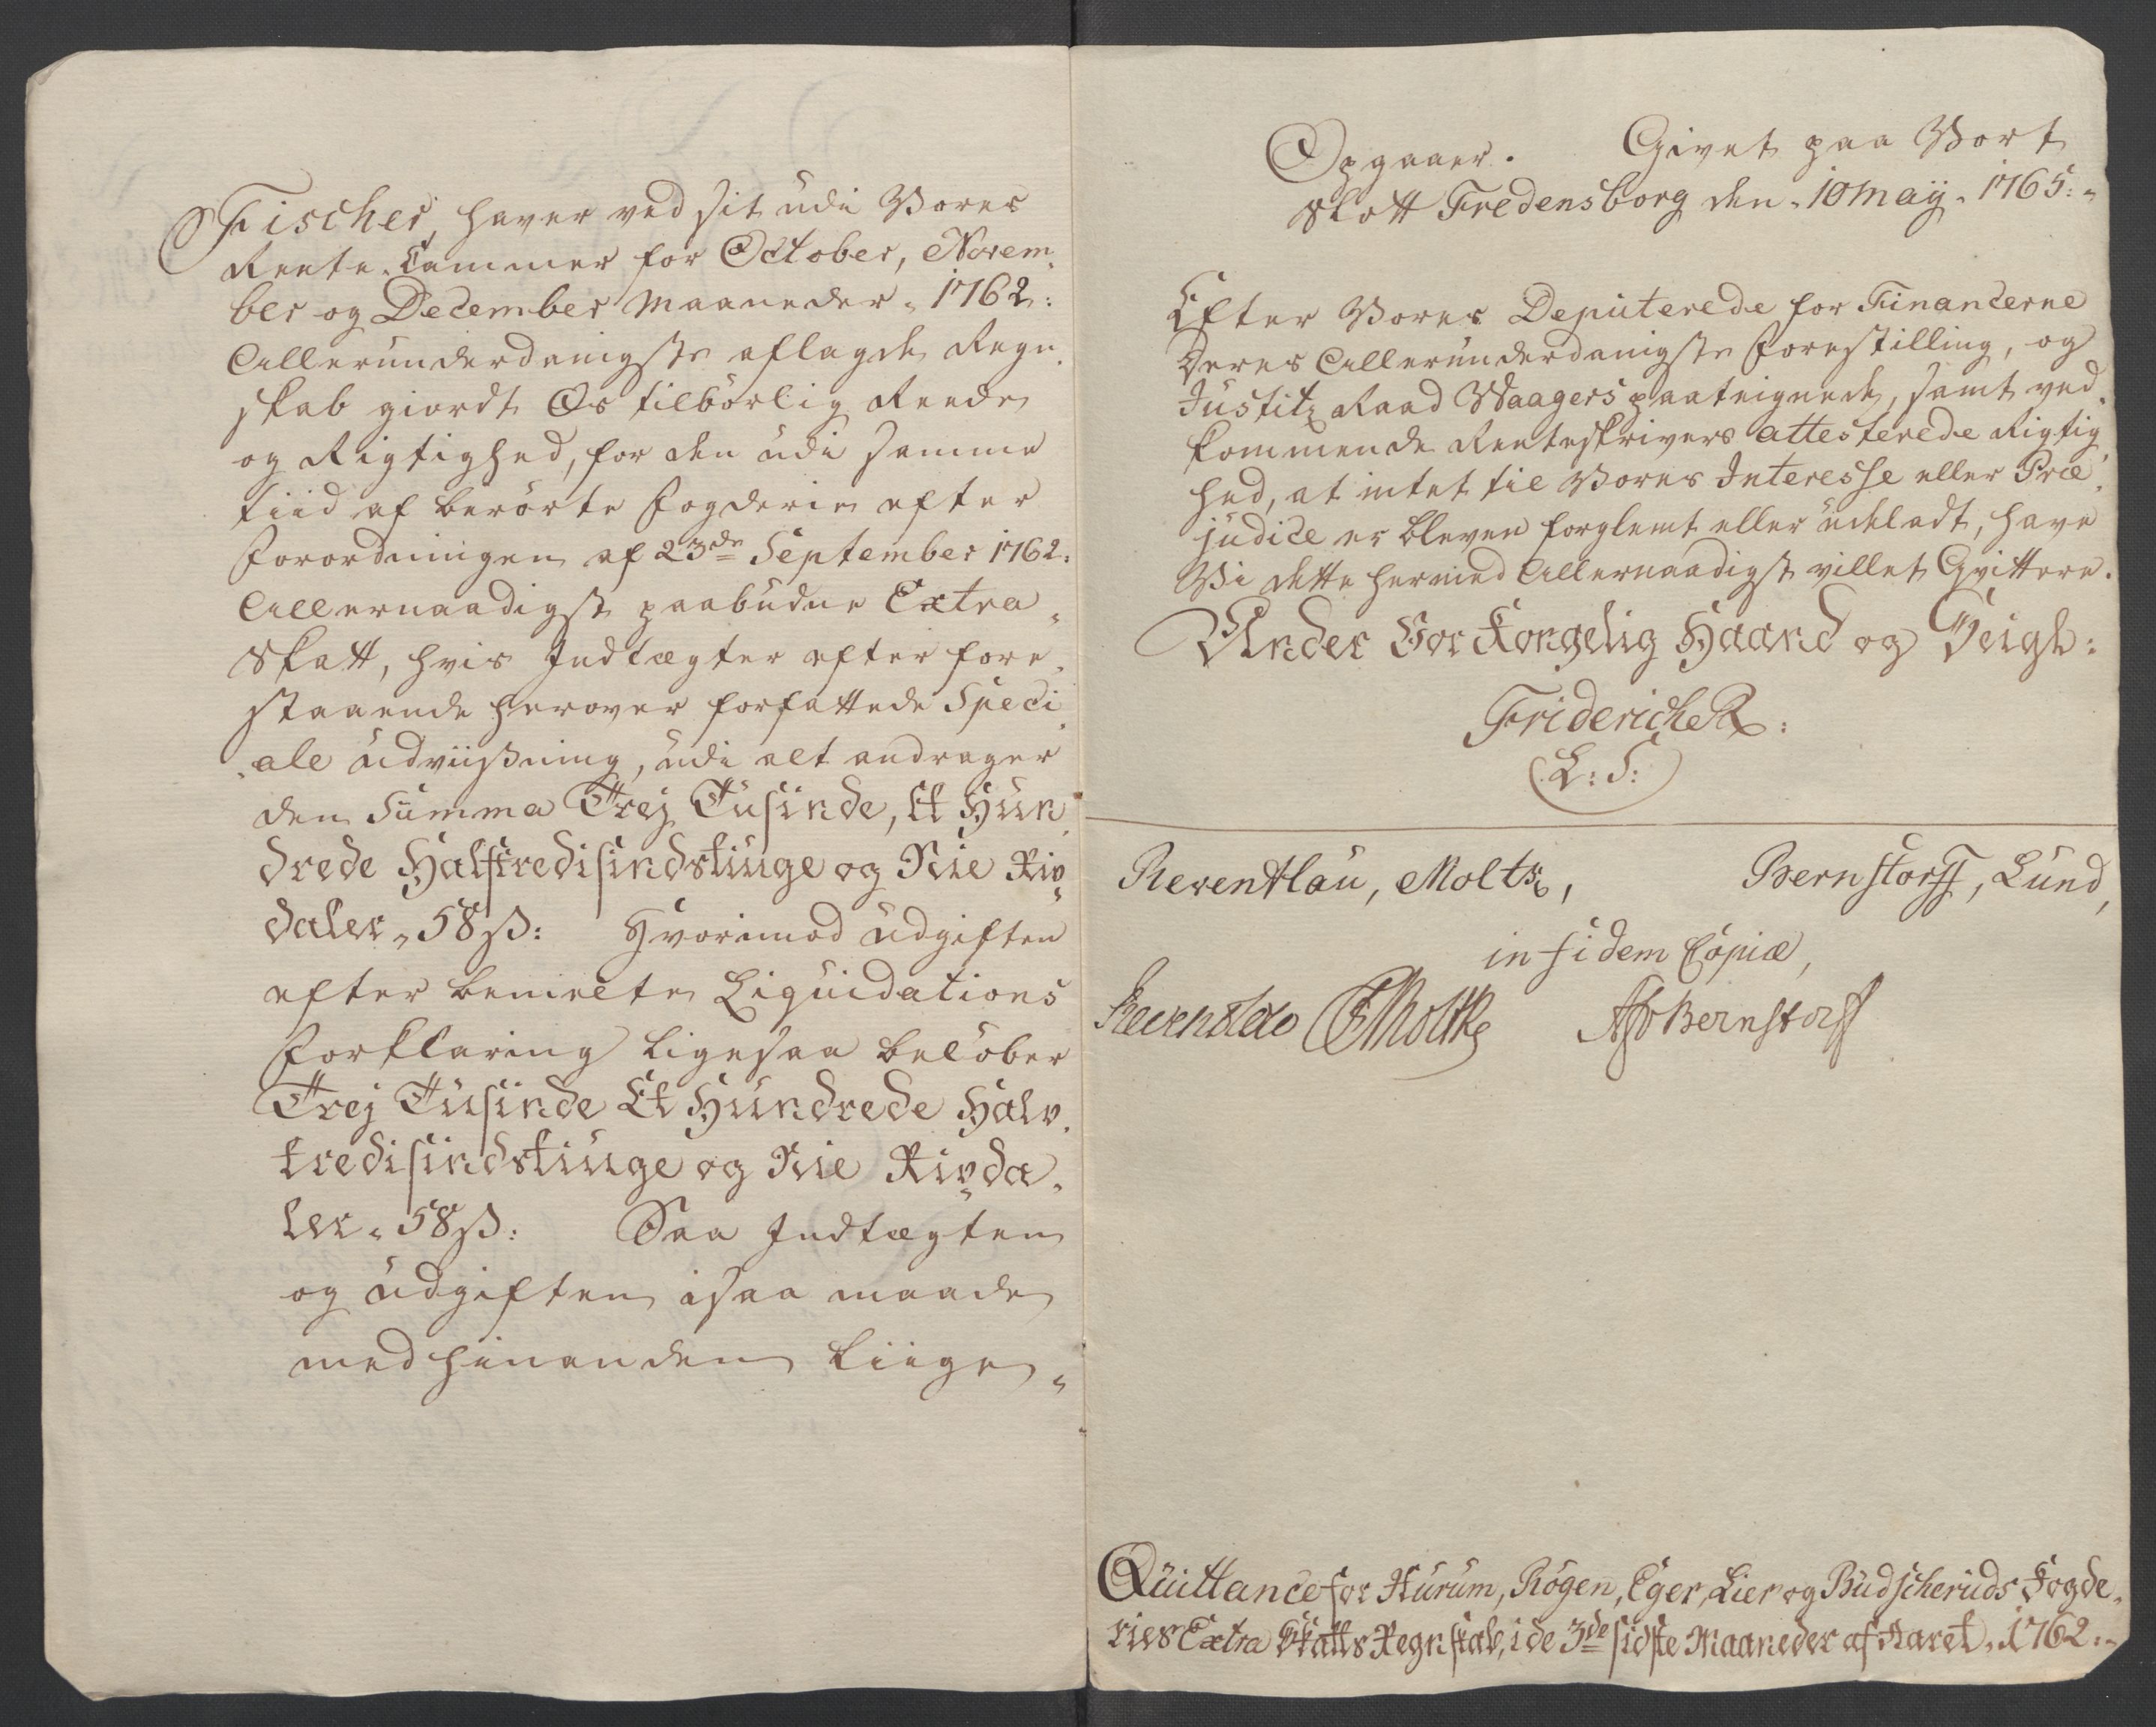 Fischer, haver ved sit udi Vores
Rente-Cammer for October, Novem-
ber og December Maaneder 1762:
Allerunderdanigste aflagde Regn-
skab giordt Os tilbörlig Reede
og Rigtighed, for den udi samme
tiid af berörte Fogderie efter
Forordningen af 23de September 1762:
Allernaadigst paabudne Extra-
Skatt, hvis Indtægter efter fore-
staaende herover forfattede Speci-
ale Udviisning, udi alt andrager
den Summa Trej Tusinde, Et Hun-
drede Halftredisindstiuge og Nie Rix-
daler 58 ß: Hvorimod Udgiften
efter bemelte Liquidations
Forklaring ligesaa belöber
Trej Tusinde Et Hundrede Halv-
tredisindstiuge og Nie Rixda-
ler 58 ß: Saa Indtægten
og Udgiften i saa maade
med hinanden liige
Opgaaer. Givet paa Vort
Slott Fredensborg den 10 Maÿ 1765:
Efter Vores Deputerede for Financerne
Deres Allerunderdanigste Forestilling, og
Justitz Raad Waagers paateignede, samt ved-
kommende Renteskrivers attesterede Rigtig-
hed, at intet til Vores Interesse eller Præ-
judice er bleven forglemt eller udeladt, have
Vi dette hermed Allernaadigst villet Qvittere.
Under Vor Kongelig Haand og Seigl:
Friderich R:
(L: S:)
Reventlau, Moltke, Bernstorff, Lund,
in fidem Copiæ,
Reventlow Moltke Bernstorff
Quittance for Hurum, Rögen, Eger, Lier og Budscheruds Fogde-
ries Extra Skatts Regnskab, i de 3de sidste Maaneder af Aaret 1762: